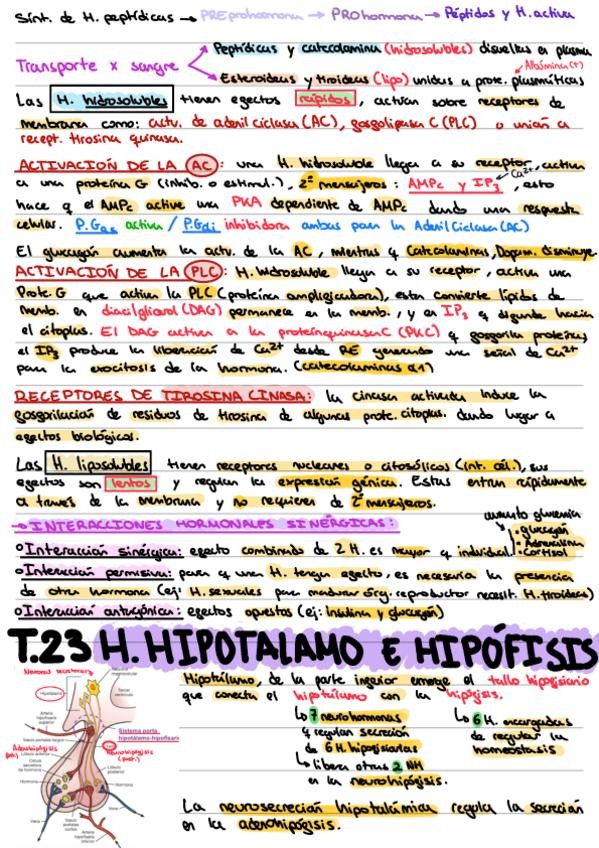 Sínt. de H. peptídicas → PREprohormona → PROhormona → Péptidos y H. activa
Transporte x sangre
Peptídicas y catecolamina (hidrosolubles) disueltas en plasma
Albúmina (+)
Esteroideas y tiroideas (lipo) unidas a prote. plasmáticas
Las H. hidrosolubles tienen egectos rápidos, actúan sobre receptores de
membrana como: activ. de adenil ciclasa (AC), gosgolipasa C (PLC) o unión a
recept. tirosina quinasa.
ACTIVACIÓN DE LA AC: una H. hidrosoluble llega a su receptor, activa
a una proteína G (inhib. o estimul.), 2º mensajeros: AMPc y IP3, esto
Ca2+
hace q el AMPc active una PKA dependiente de AMPc dando una respuesta
celular. P.Gαs activa / P.Gαi inhibidora ambas para la Adenil Ciclasa (AC)
El glucagón aumenta la activ. de la AC, mientras q Catecolaminas, Dopam. disminuye.
ACTIVACIÓN DE LA PLC: H. hidrosoluble llega a su receptor, activa una
Prote. G que activa la PLC (proteína ampligicadora), esta convierte lípidos de
memb. en diacilglicerol (DAG) permanece en la memb., y en IP3 q digunde hacia
el citoplas. El DAG activa a la proteínquinasa C (PKC) q gosgorila proteínas
el IP3 produce la liberación de Ca2+ desde RE generando una señal de Ca2+
para la exocitosis de la hormona. (catecolaminas α1)
RECEPTORES DE TIROSINA CINASA: la cinasa activada induce la
gosgorilación de residuos de tirosina de algunas prote. citoplas. dando lugar a
egectos biológicos.
Las H. liposolubles tienen receptores nucleares o citosólicos (int. cél.), sus
egectos son lentos y regulan la expresión génica. Estas entran rápidamente
a través de la membrana y no requieren de 2º mensajeros.
→ INTERACCIONES HORMONALES SINÉRGICAS:
aumento glucemia
• glucagón
• Adrenalina
• Cortisol
Interacción sinérgica: egecto combinado de 2 H. es mayor q individual.
Interacción permisiva: para q una H. tenga egecto, es necesaria la presencia
de otra hormona (ej: H. sexuales para madurar órg. reproductor necesit. H. tiroideas)
Interacción antagónica: egectos opuestos (ej: insulina y glucagón)
T.23 H. HIPOTALAMO E HIPÓFISIS
Hipotálamo, de la parte ingerior emerge el tallo hipogisiario
que conecta el hipotálamo con la hipógisis.
↳ 7 neurohormonas
q regulan secreción
de 6 H. hipogisiarias
↳ libera otras 2 NH
en la neurohipógisis.
↳ 6 H. encargadas
de regular la
homeostasis
La neurosecreción hipotalámica regula la secreción
en la adenohipógisis.
Hipotálamo
Arteria
hipofisaria
superior
Tercer
ventrículo
Sistema porta
hipotálamo-hipofisario
Adenohipógisis
Neurohipógisis
Lóbulo anterior
Célula
secretora
de hormona
Lóbulo
posterior
Hormona
Hormona
Vena
Vena
Vasos
portales
cortos
Arteria
hipofisaria
inferior